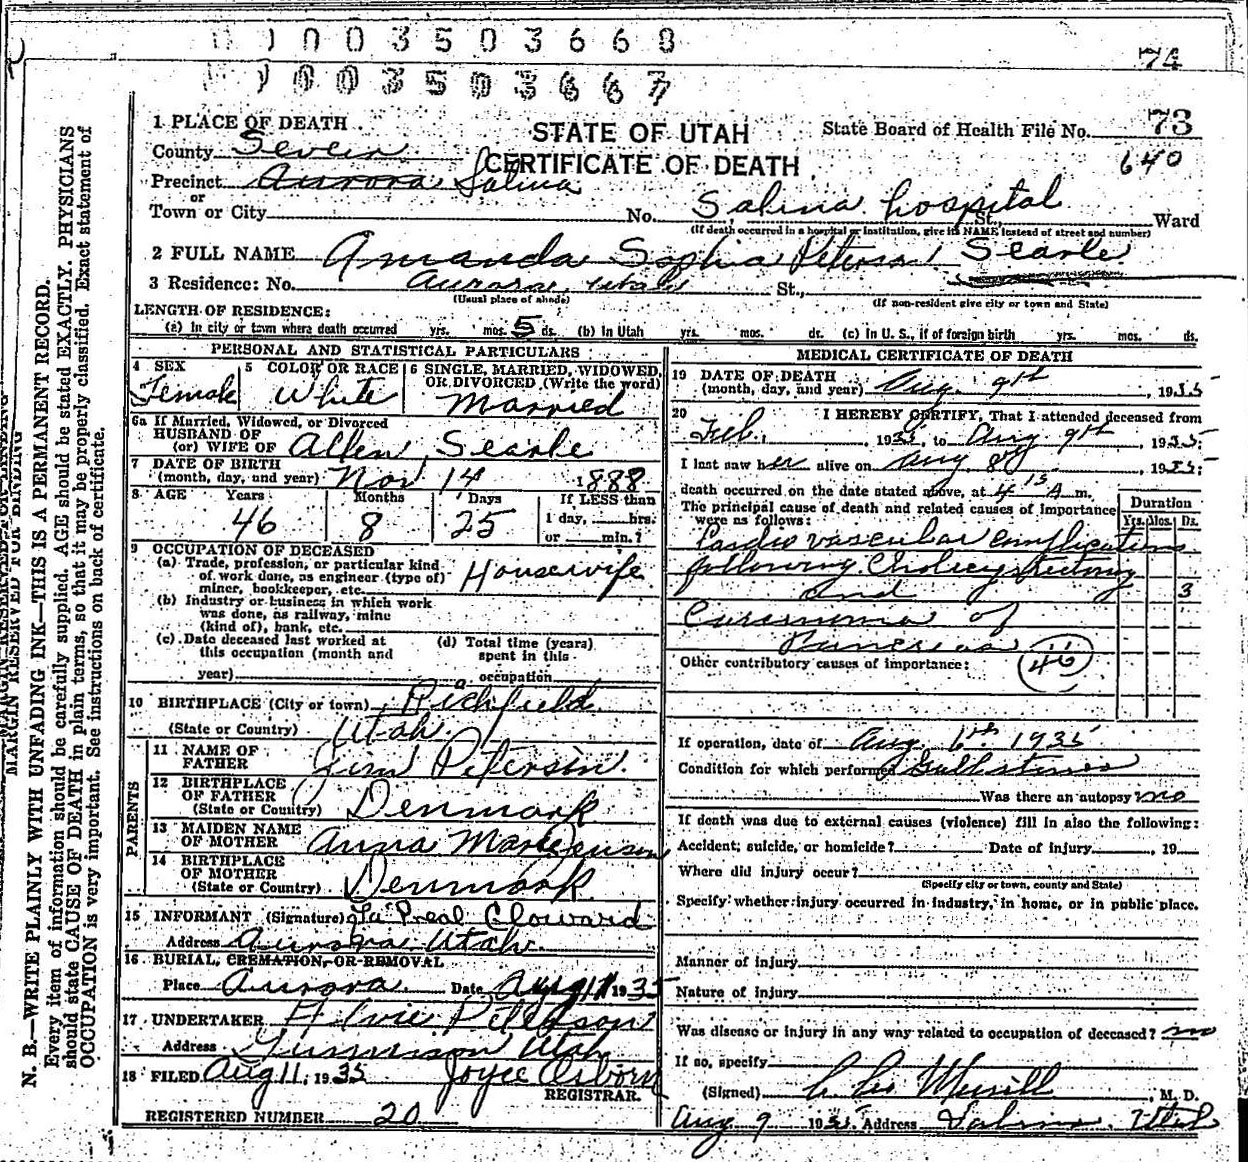 1003503668
74
1003503667
1 PLACE OF DEATH
STATE OF UTAH
State Board of Health File No. 73
County Sevier
CERTIFICATE OF DEATH
640
Precinct Aurora Salina
or
Town or City
No. Salina hospital St., Ward
(If death occurred in a hospital or institution, give its NAME instead of street and number)
2 FULL NAME Amanda Sophia Peterson Searle
3 Residence: No. Aurora, Utah St.,
(Usual place of abode)
(If non-resident give city or town and State)
LENGTH OF RESIDENCE:
(a) In city or town where death occurred yrs. mos. 5 ds. (b) In Utah yrs. mos. ds. (c) In U. S., if of foreign birth yrs. mos. ds.
PERSONAL AND STATISTICAL PARTICULARS
4 SEX
Female
5 COLOR OR RACE
White
6 SINGLE, MARRIED, WIDOWED, OR DIVORCED (Write the word)
Married
6a If Married, Widowed, or Divorced
HUSBAND OF
(or) WIFE OF Allen Searle
7 DATE OF BIRTH
(month, day, and year) Nov 14 1888
8 AGE Years Months Days If LESS than
46 8 25 1 day, hrs.
or min.?
9 OCCUPATION OF DECEASED
(a) Trade, profession, or particular kind
of work done, as engineer (type of)
miner, bookkeeper, etc. Housewife
(b) Industry or business in which work
was done, as railway, mine
(kind of), bank, etc.
(c) Date deceased last worked at
this occupation (month and
year)
(d) Total time (years)
spent in this
occupation
10 BIRTHPLACE (City or town) Richfield
(State or Country) Utah
PARENTS
11 NAME OF
FATHER Jim Peterson
12 BIRTHPLACE
OF FATHER
(State or Country) Denmark
13 MAIDEN NAME
OF MOTHER Anna Marie Jensen
14 BIRTHPLACE
OF MOTHER
(State or Country) Denmark
15 INFORMANT (Signature) La Preal Cloward
Address Aurora Utah
16 BURIAL, CREMATION, OR REMOVAL
Place Aurora Date Aug 11 1935
17 UNDERTAKER Elvie Peterson
Address Gunnison Utah
18 FILED Aug 11, 1935 Joyce Osborn
REGISTRAR.
REGISTERED NUMBER 20
MEDICAL CERTIFICATE OF DEATH
19 DATE OF DEATH
(month, day, and year) Aug. 9th, 1935
20 I HEREBY CERTIFY, That I attended deceased from
Feb., 1935, to Aug 9th, 1935;
I last saw her alive on Aug 8, 1935;
death occurred on the date stated above, at 4 15 A m.
The principal cause of death and related causes of importance
were as follows:
Duration
Yrs. Mos. Ds.
Cardio vascular complications
following Cholecystectomy
and 3
Carcinoma of
Pancreas
46
Other contributory causes of importance:
If operation, date of Aug 6th 1935
Condition for which performed Gallstones
Was there an autopsy no
If death was due to external causes (violence) fill in also the following:
Accident, suicide, or homicide? Date of injury, 19
Where did injury occur?
(Specify city or town, county and State)
Specify whether injury occurred in industry, in home, or in public place.
Manner of injury
Nature of injury
Was disease or injury in any way related to occupation of deceased? no
If so, specify
(Signed) Merrill, M. D.
Aug 9 1935 Address Salina Utah
MARGIN RESERVED FOR BINDING
N. B.—WRITE PLAINLY WITH UNFADING INK—THIS IS A PERMANENT RECORD.
Every item of information should be carefully supplied. AGE should be stated EXACTLY. PHYSICIANS
should state CAUSE OF DEATH in plain terms, so that it may be properly classified. Exact statement of
OCCUPATION is very important. See instructions on back of certificate.